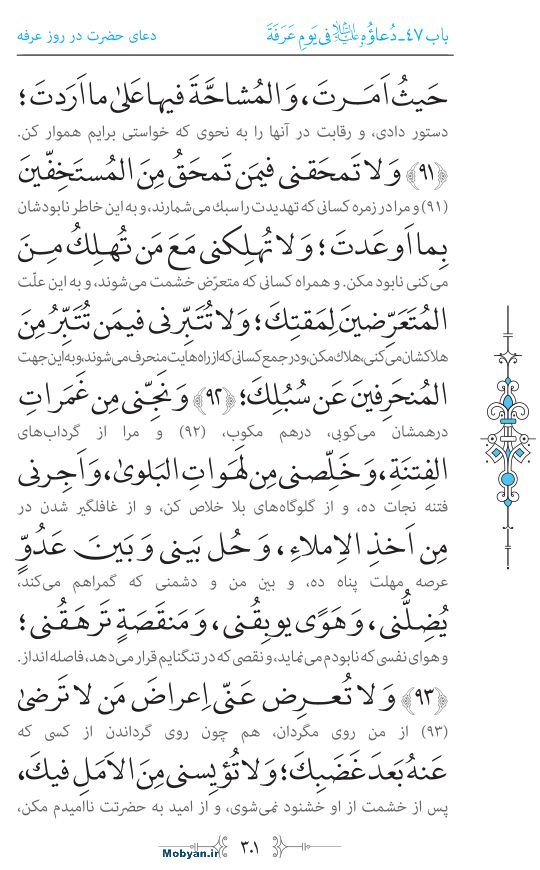 باب ٤٧ـ دُعاؤُهُ عليه‌السلام فى يَومِ عَرَفَةَ دعای حضرت در روز عرفه
حَيثُ اَمَرتَ، وَ المُشاحَّةَ فيها عَلىٰ ما اَرَدتَ؛
دستور دادی، و رقابت در آنها را به نحوی که خواستی برایم هموار کن.
﴿٩١﴾ وَ لا تَمحَقنى فيمَن تَمحَقُ مِنَ المُستَخِفّينَ
(٩١) و مرا در زمره کسانی که تهدیدت را سبک می‌شمارند، و به این خاطر نابودشان
بِما اَوعَدتَ؛ وَ لا تُهلِكنى مَعَ مَن تُهلِكُ مِنَ
می‌کنی نابود مکن. و همراه کسانی که متعرّض خشمت می‌شوند، و به این علّت
المُتَعَرِّضينَ لِمَقتِكَ؛ وَ لا تُتَبِّرنى فيمَن تُتَبِّرُ مِنَ
هلاکشان می‌کنی، هلاک مکن، و در جمع کسانی که از راه‌هایت منحرف می‌شوند، و به این جهت
المُنحَرِفينَ عَن سُبُلِكَ؛ ﴿٩٢﴾ وَ نَجِّنى مِن غَمَراتِ
درهمشان می‌کوبی، درهم مکوب، (٩٢) و مرا از گرداب‌های
الفِتنَةِ، وَ خَلِّصنى مِن لَهَواتِ البَلوىٰ، وَ اَجِرنى
فتنه نجات ده، و از گلوگاه‌های بلا خلاص کن، و از غافلگیر شدن در
مِن اَخذِ الاِملاءِ، وَ حُل بَينى وَ بَينَ عَدُوٍّ
عرصه مهلت پناه ده، و بین من و دشمنی که گمراهم می‌کند،
يُضِلُّنى، وَ هَوًى يوبِقُنى، وَ مَنقَصَةٍ تَرهَقُنى؛
و هوای نفسی که نابودم می‌نماید، و نقصی که در تنگنایم قرار می‌دهد، فاصله انداز.
﴿٩٣﴾ وَ لا تُعرِض عَنّى اِعراضَ مَن لا تَرضىٰ
(٩٣) از من روی مگردان، هم چون روی گرداندن از کسی که
عَنهُ بَعدَ غَضَبِكَ؛ وَ لا تُؤيِسنى مِنَ الاَمَلِ فيكَ،
پس از خشمت از او خشنود نمی‌شوی، و از امید به حضرتت ناامیدم مکن،
٣٠١
Mobyan.ir